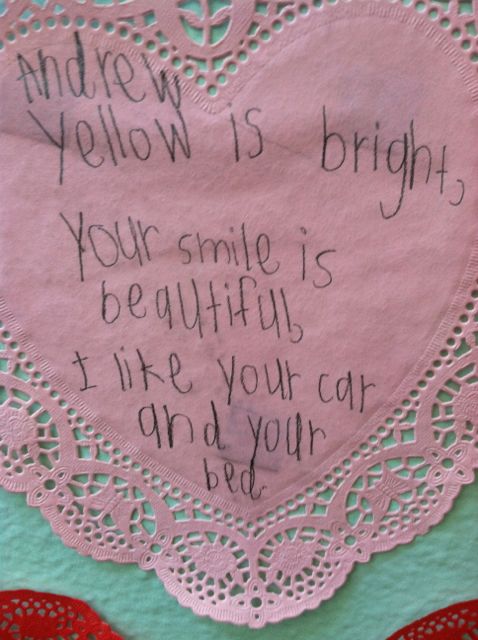 Andrew
Yellow is bright,
Your smile is
beautiful,
I like your car
and your
bed.